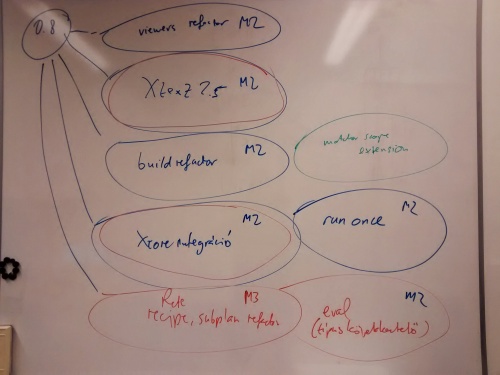 0.8
viewers refactor M2
Xtext 2.5 M2
build refactor M2
matcher scope
extension
Xcore integráció M2
run once M2
Rete M3
recipe, subplan refactor
M2
eval